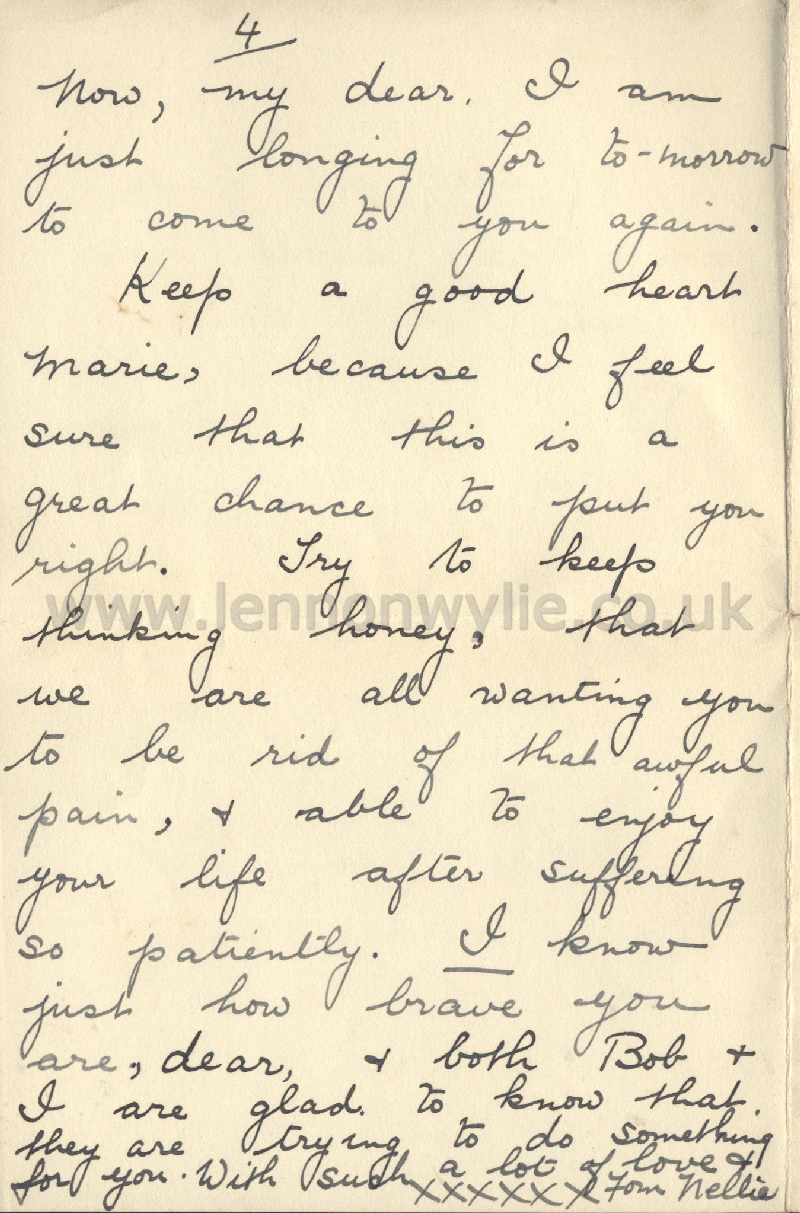 4
Now, my dear. I am
just longing for to-morrow
to come to you again.
Keep a good heart
Marie, because I feel
sure that this is a
great chance to put you
right. Try to keep
www.lennonwylie.co.uk
thinking honey, that
we are all wanting you
to be rid of that awful
pain, & able to enjoy
your life after suffering
so patiently. I know
just how brave you
are, dear, & both Bob &
I are glad. to know that
they are trying to do something
for you. With such a lot of love &
xxxxxx from Nellie